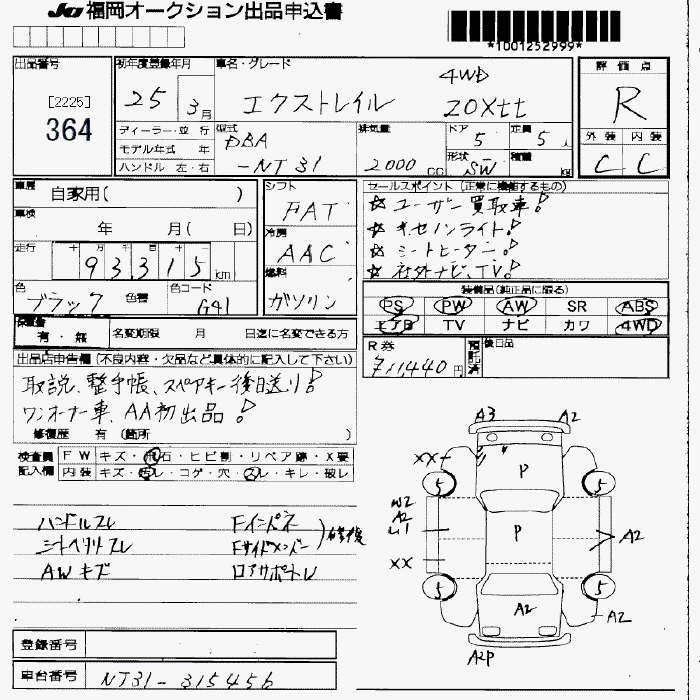 JU 福岡オークション出品申込書
*1001252999*
出品番号
[2225]
364
初年度登録年月
25
3月
車名・グレード
4WD
エクストレイル 20Xtt
評価点
R
外装 内装
C C
ディーラー・並行
モデル年式 年
ハンドル 左・右
型式
DBA
-NT31
排気量
2000 CC
ドア
5
定員
5人
形状
SW
積量
kg
車歴
自家用( )
車検
年 月( 日)
走行
十 万 千 百 十 一
93,315 km
色
ブラック
色替
色コード
G41
シフト
FAT
冷房
AAC
燃料
ガソリン
セールスポイント(正常に機能するもの)
☆ユーザー買取車!
☆キセノンライト!
☆シートヒーター!
☆社外ナビ、TV!
装備品(純正品に限る)
PS PW AW SR ABS
エアB TV ナビ カワ 4WD
保証書
有・無
名変期限 月 日迄に名変できる方
R券
円
預託済
後日品
出品店申告欄(不良内容・欠品など具体的に記入して下さい)
取説、整手帳、スペアキー後日送り!
ワンオーナー車、AA初出品!
修復歴 有(箇所 )
検査員記入欄
FW キズ・飛石・ヒビ割・リペア跡・X要
内装 キズ・汚レ・コゲ・穴・スレ・キレ・破レ
ハンドルスレ Fインパネ
シートヘリスレ Fサイドメンバー
AWキズ ロアサポート
修復
A3 A2
XX
5 P 5
W2
A2
U1
P
A2
XX
5 A2 5
A2
A2P
登録番号
車台番号 NT31-315456